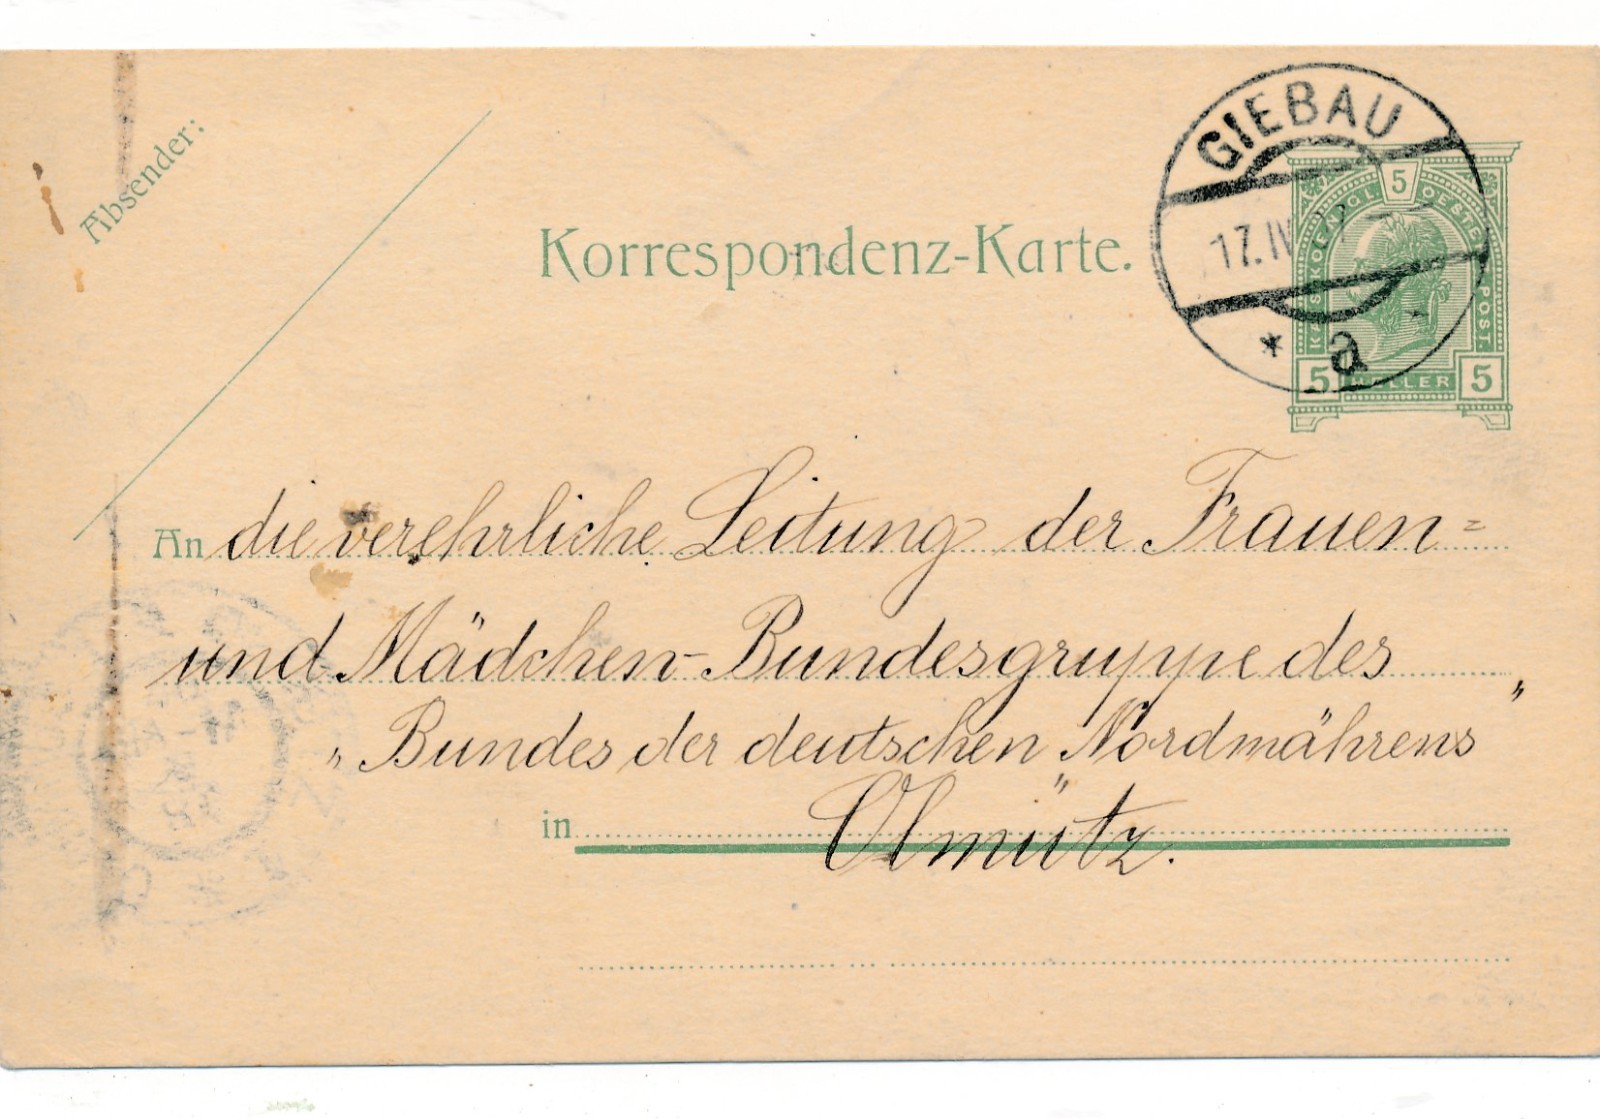 Absender:
GIEBAU
17. IV
* a
5
5 HELLER 5
Korrespondenz-Karte.
An die verehrliche Leitung der Frauen=
und Mädchen-Bundesgruppe des
„Bundes der deutschen Nordmährens"
in Olmütz.